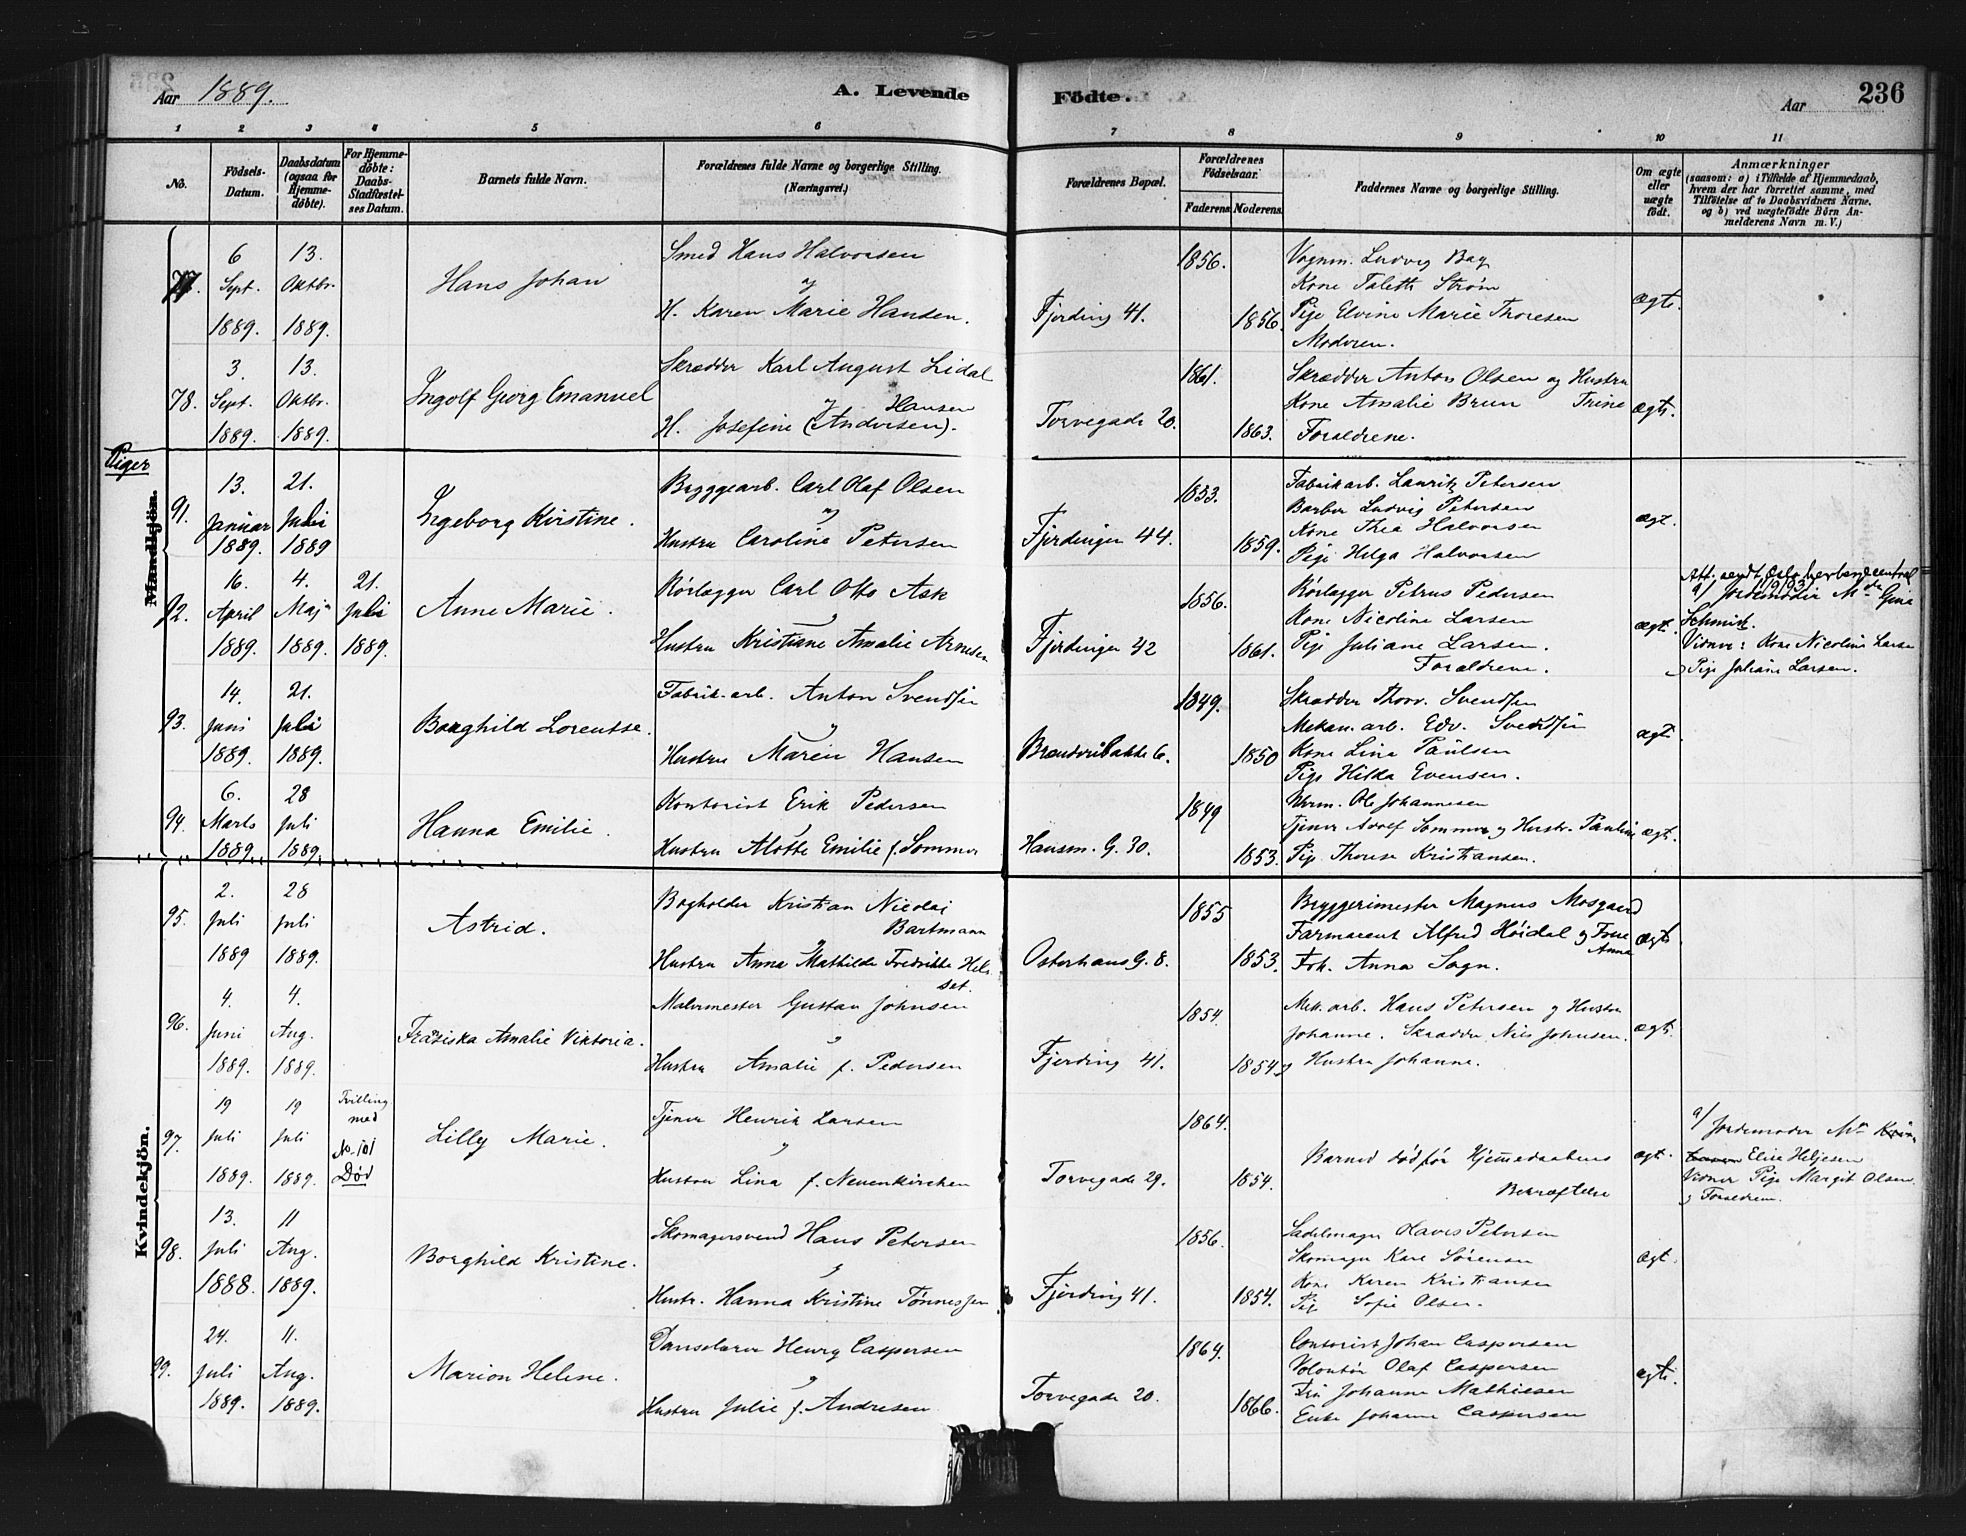 Aar 1889.
A. Levende
Födte.
Aar
236
1 2 3 4 5 6 7 8 9 10 11
No.
Födsels-
Datum.
Daabsdatum
(ogsaa for
Hjemme-
döbte).
For Hjemme-
döbte:
Daabs-
Stadfæstel-
ses Datum.
Barnets fulde Navn.
Forældrenes fulde Navne og borgerlige Stilling.
(Næringsvei.)
Forældrenes Bopæl.
Forældrenes
Födselsaar.
Faderens.
Moderens.
Faddernes Navne og borgerlige Stilling.
Om ægte
eller
uægte
födt.
Anmærkninger
(saasom: a) i Tilfælde af Hjemmedaab,
hvem der har forrettet samme, med
Tilföielse af to Daabsvidners Navne,
og b) ved uægtefödte Börn An-
melderens Navn m. V.)
77.
6
Sept.
1889.
13.
Oktbr.
1889.
Hans Johan
Smed Hans Halvorsen
og
H. Karen Marie Hansen.
Fjerding 41.
1856.
1856.
Vognm. Ludvig Bag
Kone Taletta Strøm
Pige Elvine Marie Thoresen
Moderen.
ægte.
78.
3.
Sept.
1889.
13.
Oktbr.
1889.
Ingolf Georg Emanuel
Skrædder Karl August Lidal
og Hansen
H. Josefine (Andersen).
Torvegade 20.
1861.
1863.
Skrædder Anton Olsen og Hustru
Kone Amalie Brun Trine
Forældrene.
ægte.
Piger
Mandkjön.
91.
13.
Januar
1889.
21.
Juli
1889
Ingeborg Kirstine.
Bryggearb. Carl Olaf Olsen
og
Hustru Caroline Petersen
Fjerdingen 44.
1853.
1859.
Fabrikarb. Lauritz Petersen
Barber Ludvig Petersen
Kone Thea Halvorsen
Pige Helga Halvorsen
ægt.
92.
16.
April
1889.
4.
Maj
1889.
21.
Juli
1889.
Anne Marie.
Rørlægger Carl Otto Ask
Hustru Kristiane Amalie Arnesen
Fjerdingen 42
1856.
1861.
Rørlægger Petrus Pedersen
Kone Nicoline Larsen
Pige Juliane Larsen.
Forældrene.
ægt.
a/ Jordemoder M Gina
Schmidt.
Vidner: Kone Nicoline Larsen
Pige Juliane Larsen.
93.
14.
Juni
1889.
21.
Juli
1889.
Borghild Lorentse.
Fabrik-arb. Anton Svendsen
Hustru Maren Hansen
6.
1849.
1850
Skrædder Thorv. Svendsen
Mekan. arb. Edv. Svendsen
Kone Lina Paulsen
Pige Hilda Evensen.
ægt.
94.
6.
Marts
1889.
28
Juli
1889.
Hanna Emilie.
Kontorist Erik Pedersen
Hustru Emilie f. Sommer
Hausm. G. 30.
1849
1853.
Ole Johannesen
Tjener Adolf Sommer og Hustr. Pauline
Pige Therese Kristiansen.
ægt.
Kvindekjön.
95.
2.
Juli
1889
28
Juli
1889.
Astrid.
Bogholder Kristian Nicolai
Bartmann
Hustru Anna Mathilde Fredrikke Hels
set.
Osterhaus G. 8.
1855
1853.
Bryggerimester Magnus Mosgaard
Farmaceut Alfred Høidal og Frue
Anna
Frk. Anna Sagn.
ægt.
96.
4.
Juni
1889.
4.
Aug.
1889.
Franziska Amalie Viktoria.
Malermester Gustav Johnsen
Hustru Amalie f. Pedersen
Fjerding 41.
1854.
1854
Mek. arb. Hans Petersen og Hustru
Johanne. Skrædder Nils Johnsen.
og Hustru Johanne.
ægt.
97.
19
Juli
1889.
19
Juli
1889.
Tvilling
med
No. 101
Død
Lilly Marie.
Tjener Henrik Larsen
Hustru Lina f. Neuenkirchen
Torvegade 29.
1864.
1854.
Barnet død før Hjemmedaabens
Bekræftelse
ægt.
a/ Jordemoder M
Elise Heljesen
Vidner Pige Margit Olsen
og Forældrene.
98.
13.
Juli
1888.
11
Aug.
1889.
Borghild Kristine.
Skomagersvend Hans Petersen
Hustr. Hanna Kristine Tønnessen
Fjerding 41.
1856.
1854.
Sadelmager Hans Petersen
Skomager Karl Sørensen
Kone Karen Kristiansen
Pige Sofie Olsen.
ægt.
99.
24.
Juli
1889.
11.
Aug.
1889.
Marion Helene.
Danselærer Henry Caspersen
Hustru Julie f. Andresen
Torvegade 20.
1864.
1866.
Contorist Johan Caspersen
Volontør Olaf Caspersen
Fru Johanne Mathiesen
Enke Johanne Caspersen
ægt.